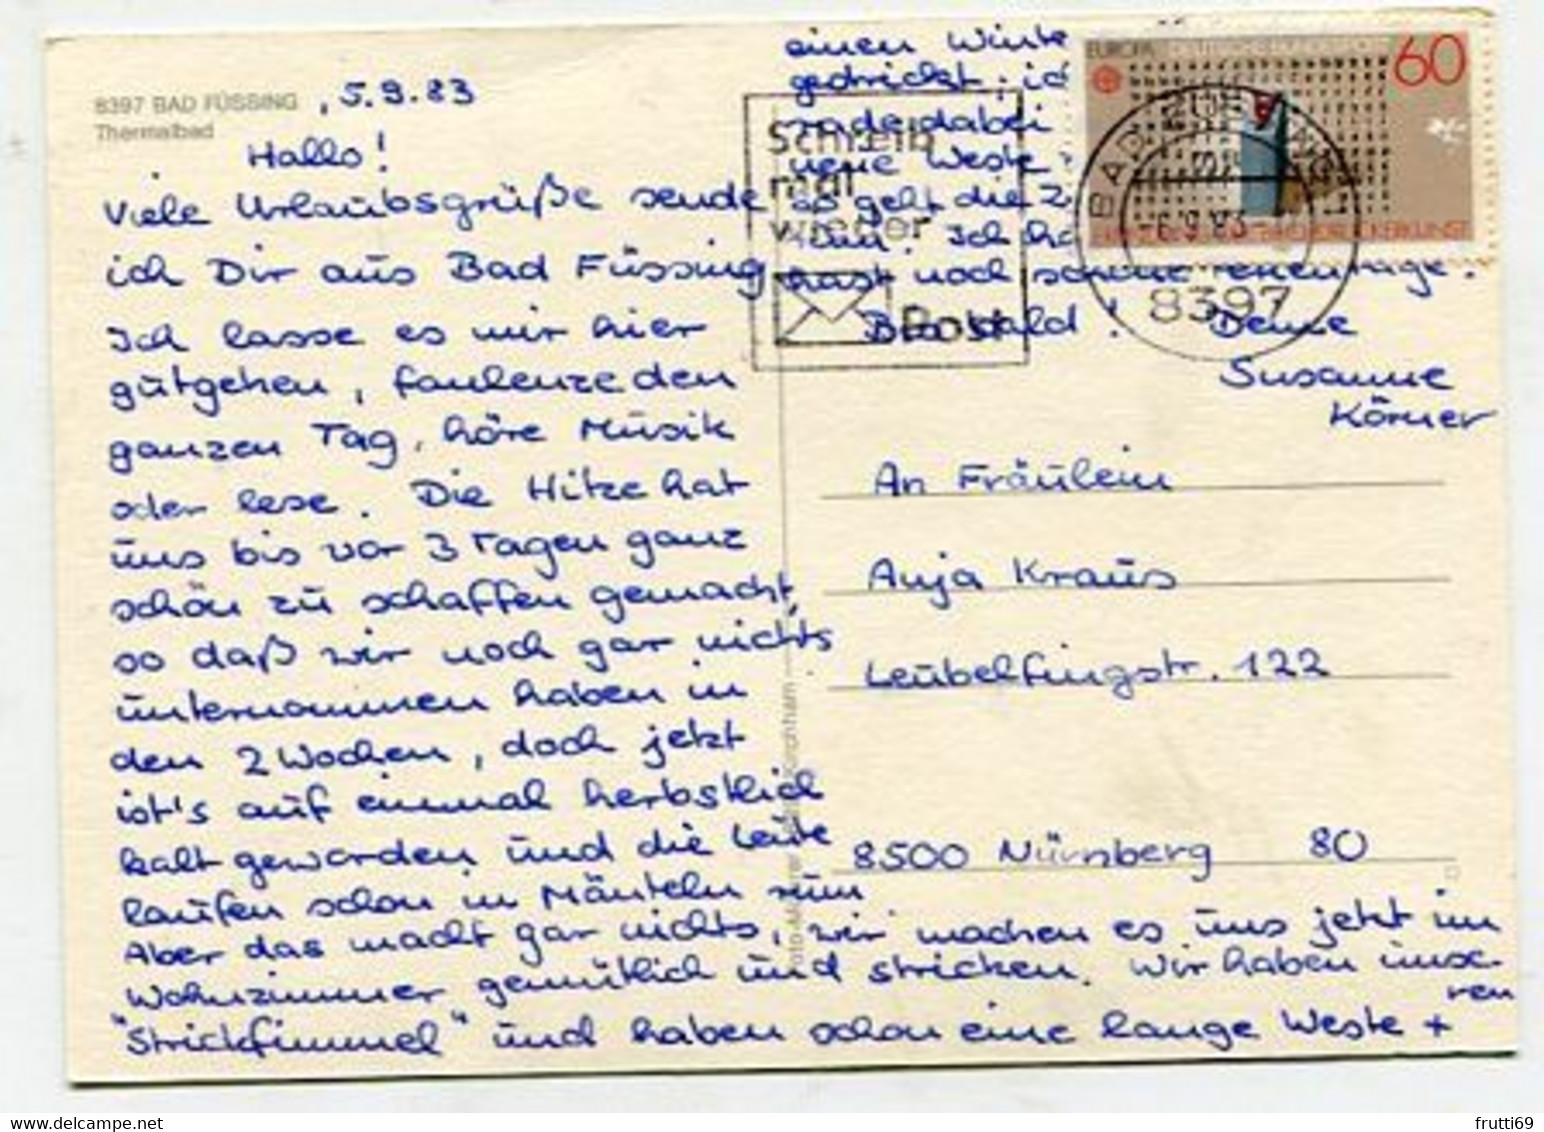 8397 BAD FÜSSING
Thermalbad
, 5.9.83
Hallo!
Viele Urlaubsgrüße sende
ich Dir aus Bad Füssing
Ich lasse es mir hier
gutgehen, faulenze den
ganzen Tag, höre Musik
oder lese. Die Hitze hat
uns bis vor 3 Tagen ganz
schön zu schaffen gemacht,
so daß wir noch gar nichts
unternommen haben in
den 2 Wochen, doch jetzt
ist's auf einmal herbstlich
kalt geworden und die Leute
laufen schon in Mänteln rum
Aber das macht gar nichts, wir machen es uns jetzt im
Wohnzimmer gemütlich und stricken. Wir haben unse-
ren
"Strickfimmel" und haben schon eine lange Weste +
einen Winte
gedrickt; ich
rade dabei
neue Weste
so geht die Z
rum. Ich ho
hast noch schöne Ferientage.
Bis bald! Deine
Susanne
Körner
Schreib
mal
wieder
Post
EUROPA
60
BAD FÜSSING
-6.9.83
8397
An Fräulein
Anja Kraus
Leubelfingstr. 122
8500 Nürnberg 80
Kirchham
frutti69